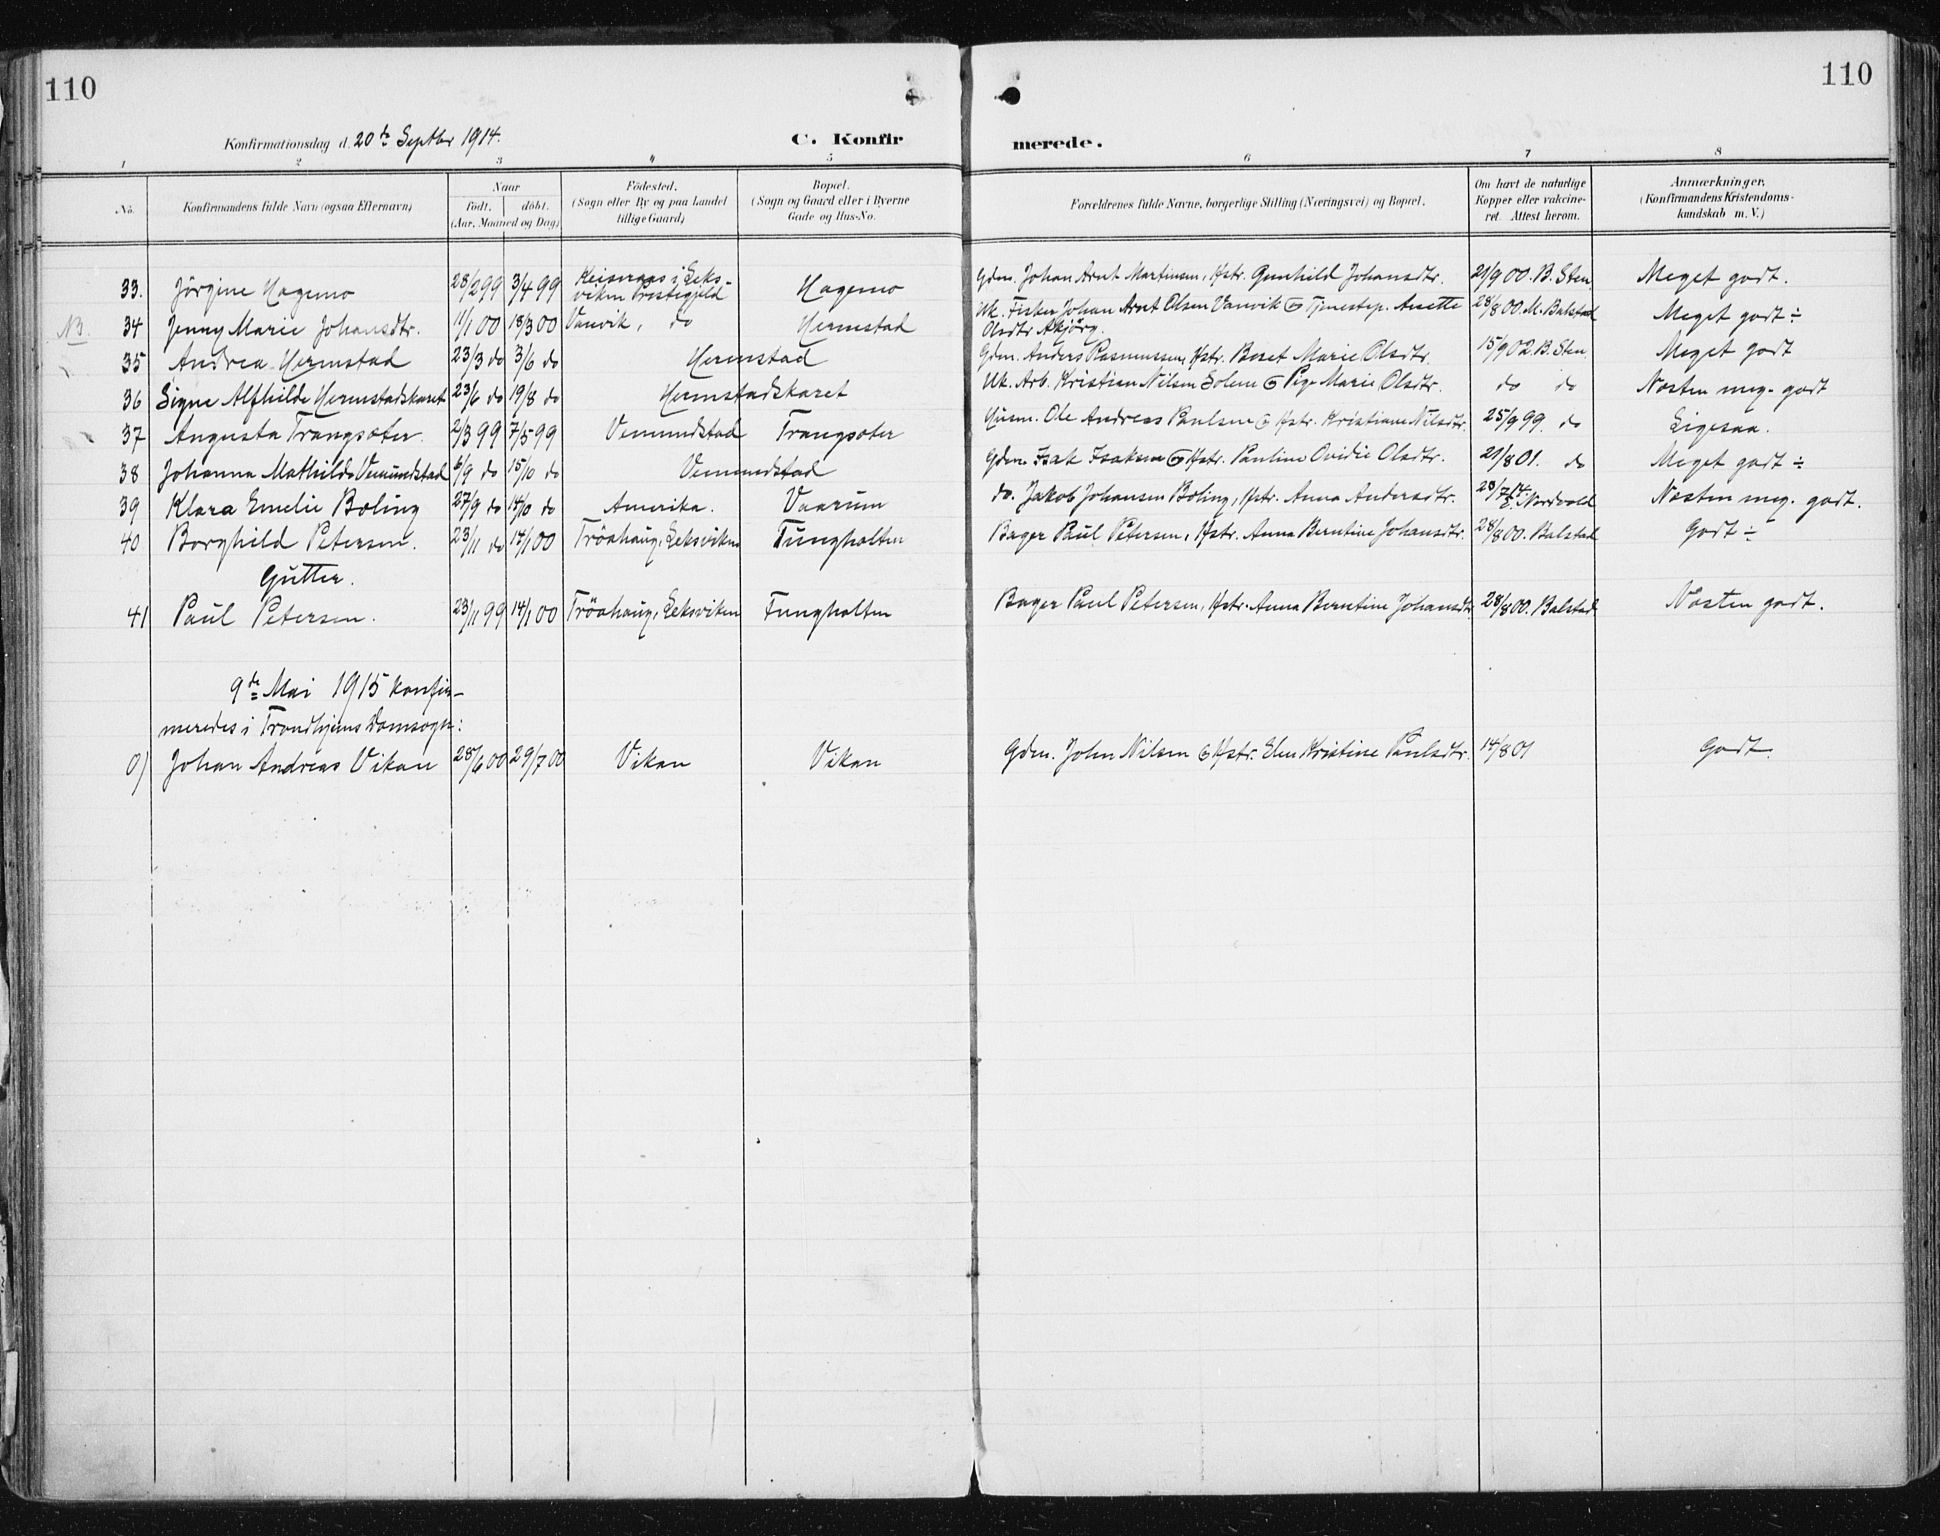 110
110
Konfirmationsdag d. 20de Septbr 1914.
C. Konfirmerede.
1 2 3 4 5 6 7 8
No.
Konfirmandens fulde Navn (ogsaa Efternavn)
Naar
født. døbt.
(Aar, Maaned og Dag)
Fødested.
(Sogn eller By og paa Landet
tillige Gaard)
Bopæl.
(Sogn og Gaard eller i Byerne
Gade og Hus-No.
Forældrenes fulde Navne, borgerlige Stilling (Næringsvei) og Bopæl.
Om havt de naturlige
Kopper eller vakcine-
ret. Attest herom.
Anmærkninger,
(Konfirmandens Kristendoms-
kundskab m. V.)
33. Jörgine Hagemo 28/2 99 3/4 99 i Leks-
viken Præstegjeld Hagemo Gdm. Johan Arnt Martinsen, Hstr. Gunhild Johansdtr. 21/9 00. B. Sten Meget godt.
NB. 34 Jenny Marie Johansdtr. 11/1 00 18/3 00 Vanvik, do Hermstad Uk. Fisker Johan Arnt Olsen Vanvik & Tjenestep. Anette
Olsdtr Askjörg. 28/8 00. M. Balstad Meget godt ÷
35 Andrea Hermstad 23/3 do 3/6 do Hermstad Gdm. Anders Rasmussen, Hstr. Beret Marie Olsdtr. 15/9 02. B. Sten. Meget godt
36 Signe Alfhilde Hermstadskaret 23/6 do 19/8 do Hermstadskaret Uk. Arb. Kristian Nilsen Solem & Pige Marie Olsdtr. do do Næsten meg. godt
37 Augusta Trangsæter. 2/3 99 7/5 99 Vemundstad Trangsæter Husm. Ole Andreas Paulsen & Hstr. Kristiane Nilsdtr. 25/9 99. do Ligesaa.
38 Johanna Mathilde Vemundstad 6/9 do 15/10 do Vemundstad Gdm. Isak Isaksen & Hstr. Pauline Ovidie Olsdtr. 21/8 01. do Meget godt ÷
39 Klara Emelie Boling 27/9 do 14/10 do Amerika. Vaarum do. Jakob Johansen Boling, Hstr. Anna Andersdtr. 28/7 Nordvold Næsten meg. godt.
40 Borghild Petersen. 23/11 do 14/1 00 Tröahaug, Leksviken Tungholten Bager Paul Petersen, Hstr. Anna Berntine Johansdtr. 28/8 00. Balstad Godt ÷
Gutter.
41 Paul Petersen. 23/11 99 14/1 00 Tröahaug, Leksviken Tungholten Bager Paul Petersen, Hstr. Anna Berntine Johansdtr. 28/8 00. Balstad Næsten godt.
9de Mai 1915 konfir-
meredes i Trondhjems Domsogn:
0) Johan Andreas Vikan 28/6 00 29/7 00 Vikan Vikan Gdm. John Nilsen & Hstr. Elen Kristine Paulsdtr. 14/8 01 Godt.